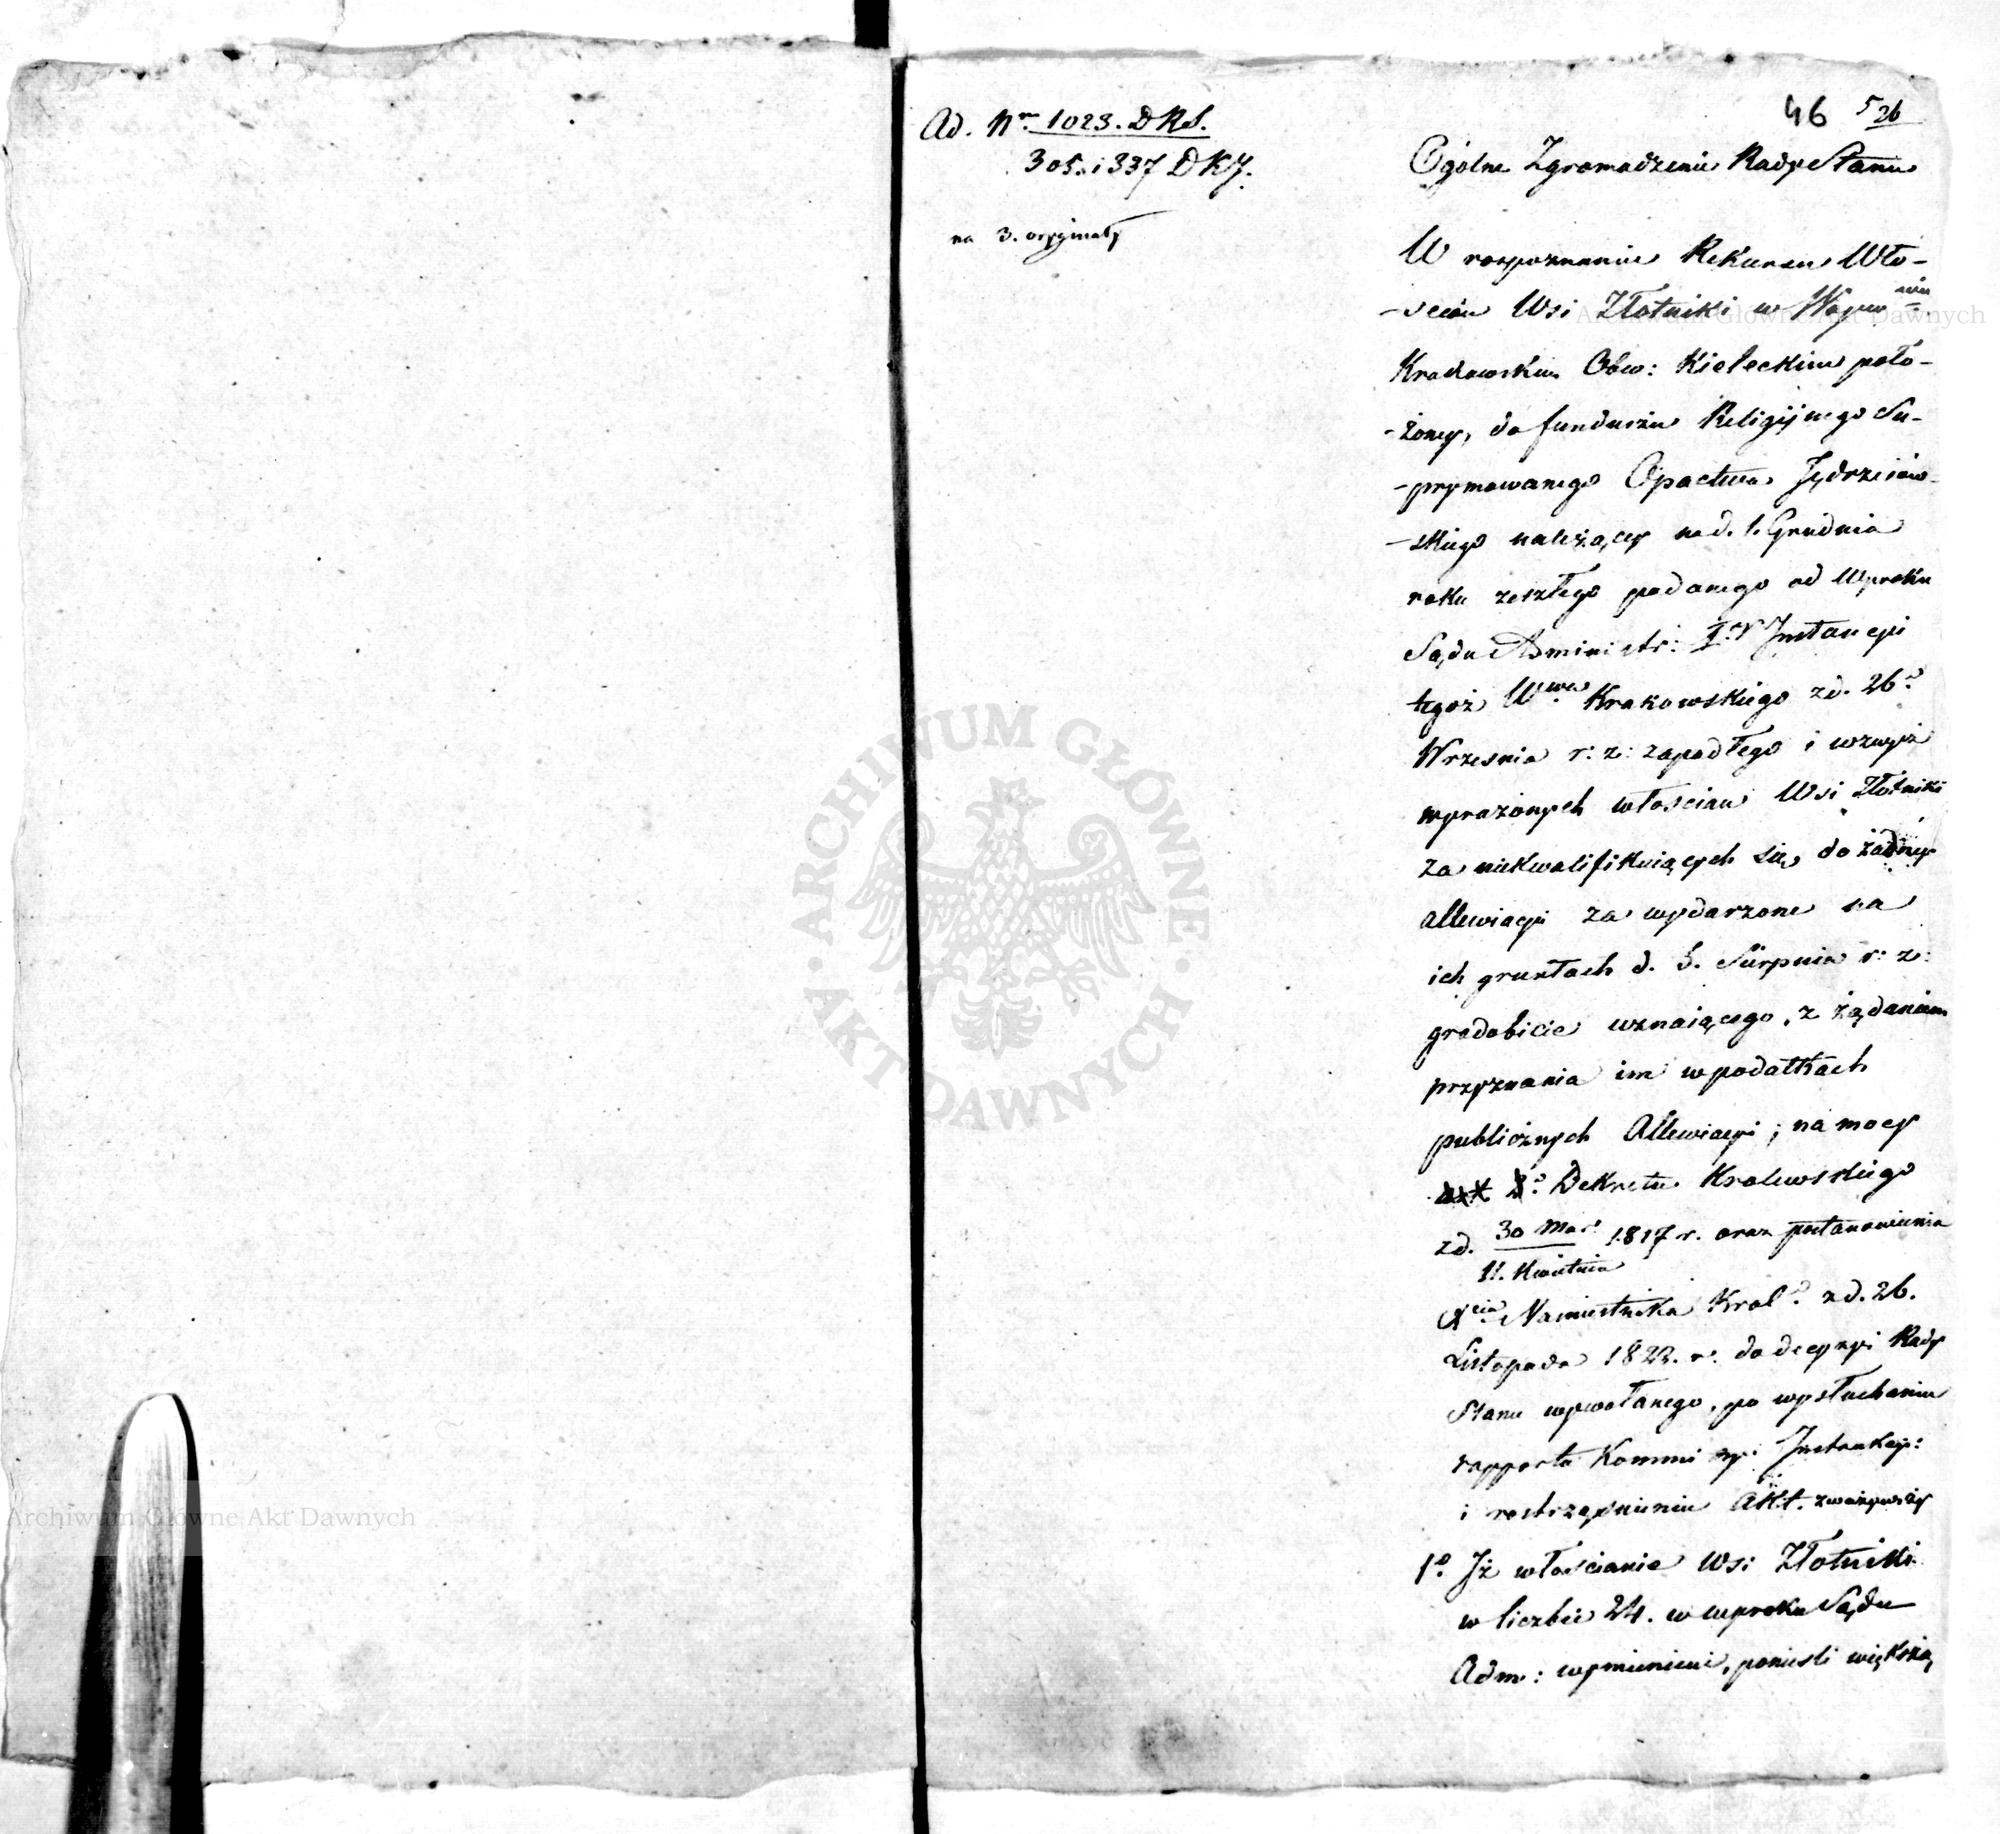 46 5/26
Ad. Nrm 1023. DRS.
305. i 337 DKJ.
na 3. oryginały
Ogolne Zgromadzenie Rady Stanu
W rozpoznaniu Rekursu Wło-
-scian Wsi Złotniki w Wojew
Krakowskim Obw: Kieleckim poło-
-żoney, do funduszu Religijnego Su-
-prymowanego Opactwa Jędrzeiow-
-skiego należącey na d. 1. Grudnia
roku zeszłego podanego od Wyroku
Sądu Administr: I.ey Instancyi
tegoż Wwa Krakowskiego z d. 26o
Wrzesnia r: z: zapadłego i wzwyż
wyrażonych włoscian Wsi Złotniki
za niekwalifikuiących się do żadney
allewiacyi za wydarzone na
ich gruntach d. 5. Sierpnia r: z:
gradobicie uznaiącego, z żądaniem
przyznania im w podatkach
publicznych Allewiacyi; na mocy
Dekretu Krolewskiego
z d. 30 Mar: 1817 r. oraz postanowienia
11. Kwietnia
Xcia Namiestnika Krolo z d. 26.
Listopada 1823. r. do decyzyi Rady
Stanu wywołanego, po wysłuchaniu
rapportu Kommi syi Instrukcyi:
i rostrząśnieniu Akt. zważywszy
1o Iż włościanie Wsi Złotniki
w liczbie 24. w wyroku Sądu
Adm: wymienieni, ponieśli większą
ARCHIWUM GŁÓWNE AKT DAWNYCH
Archiwum Główne Akt Dawnych
Archiwum Główne Akt Dawnych